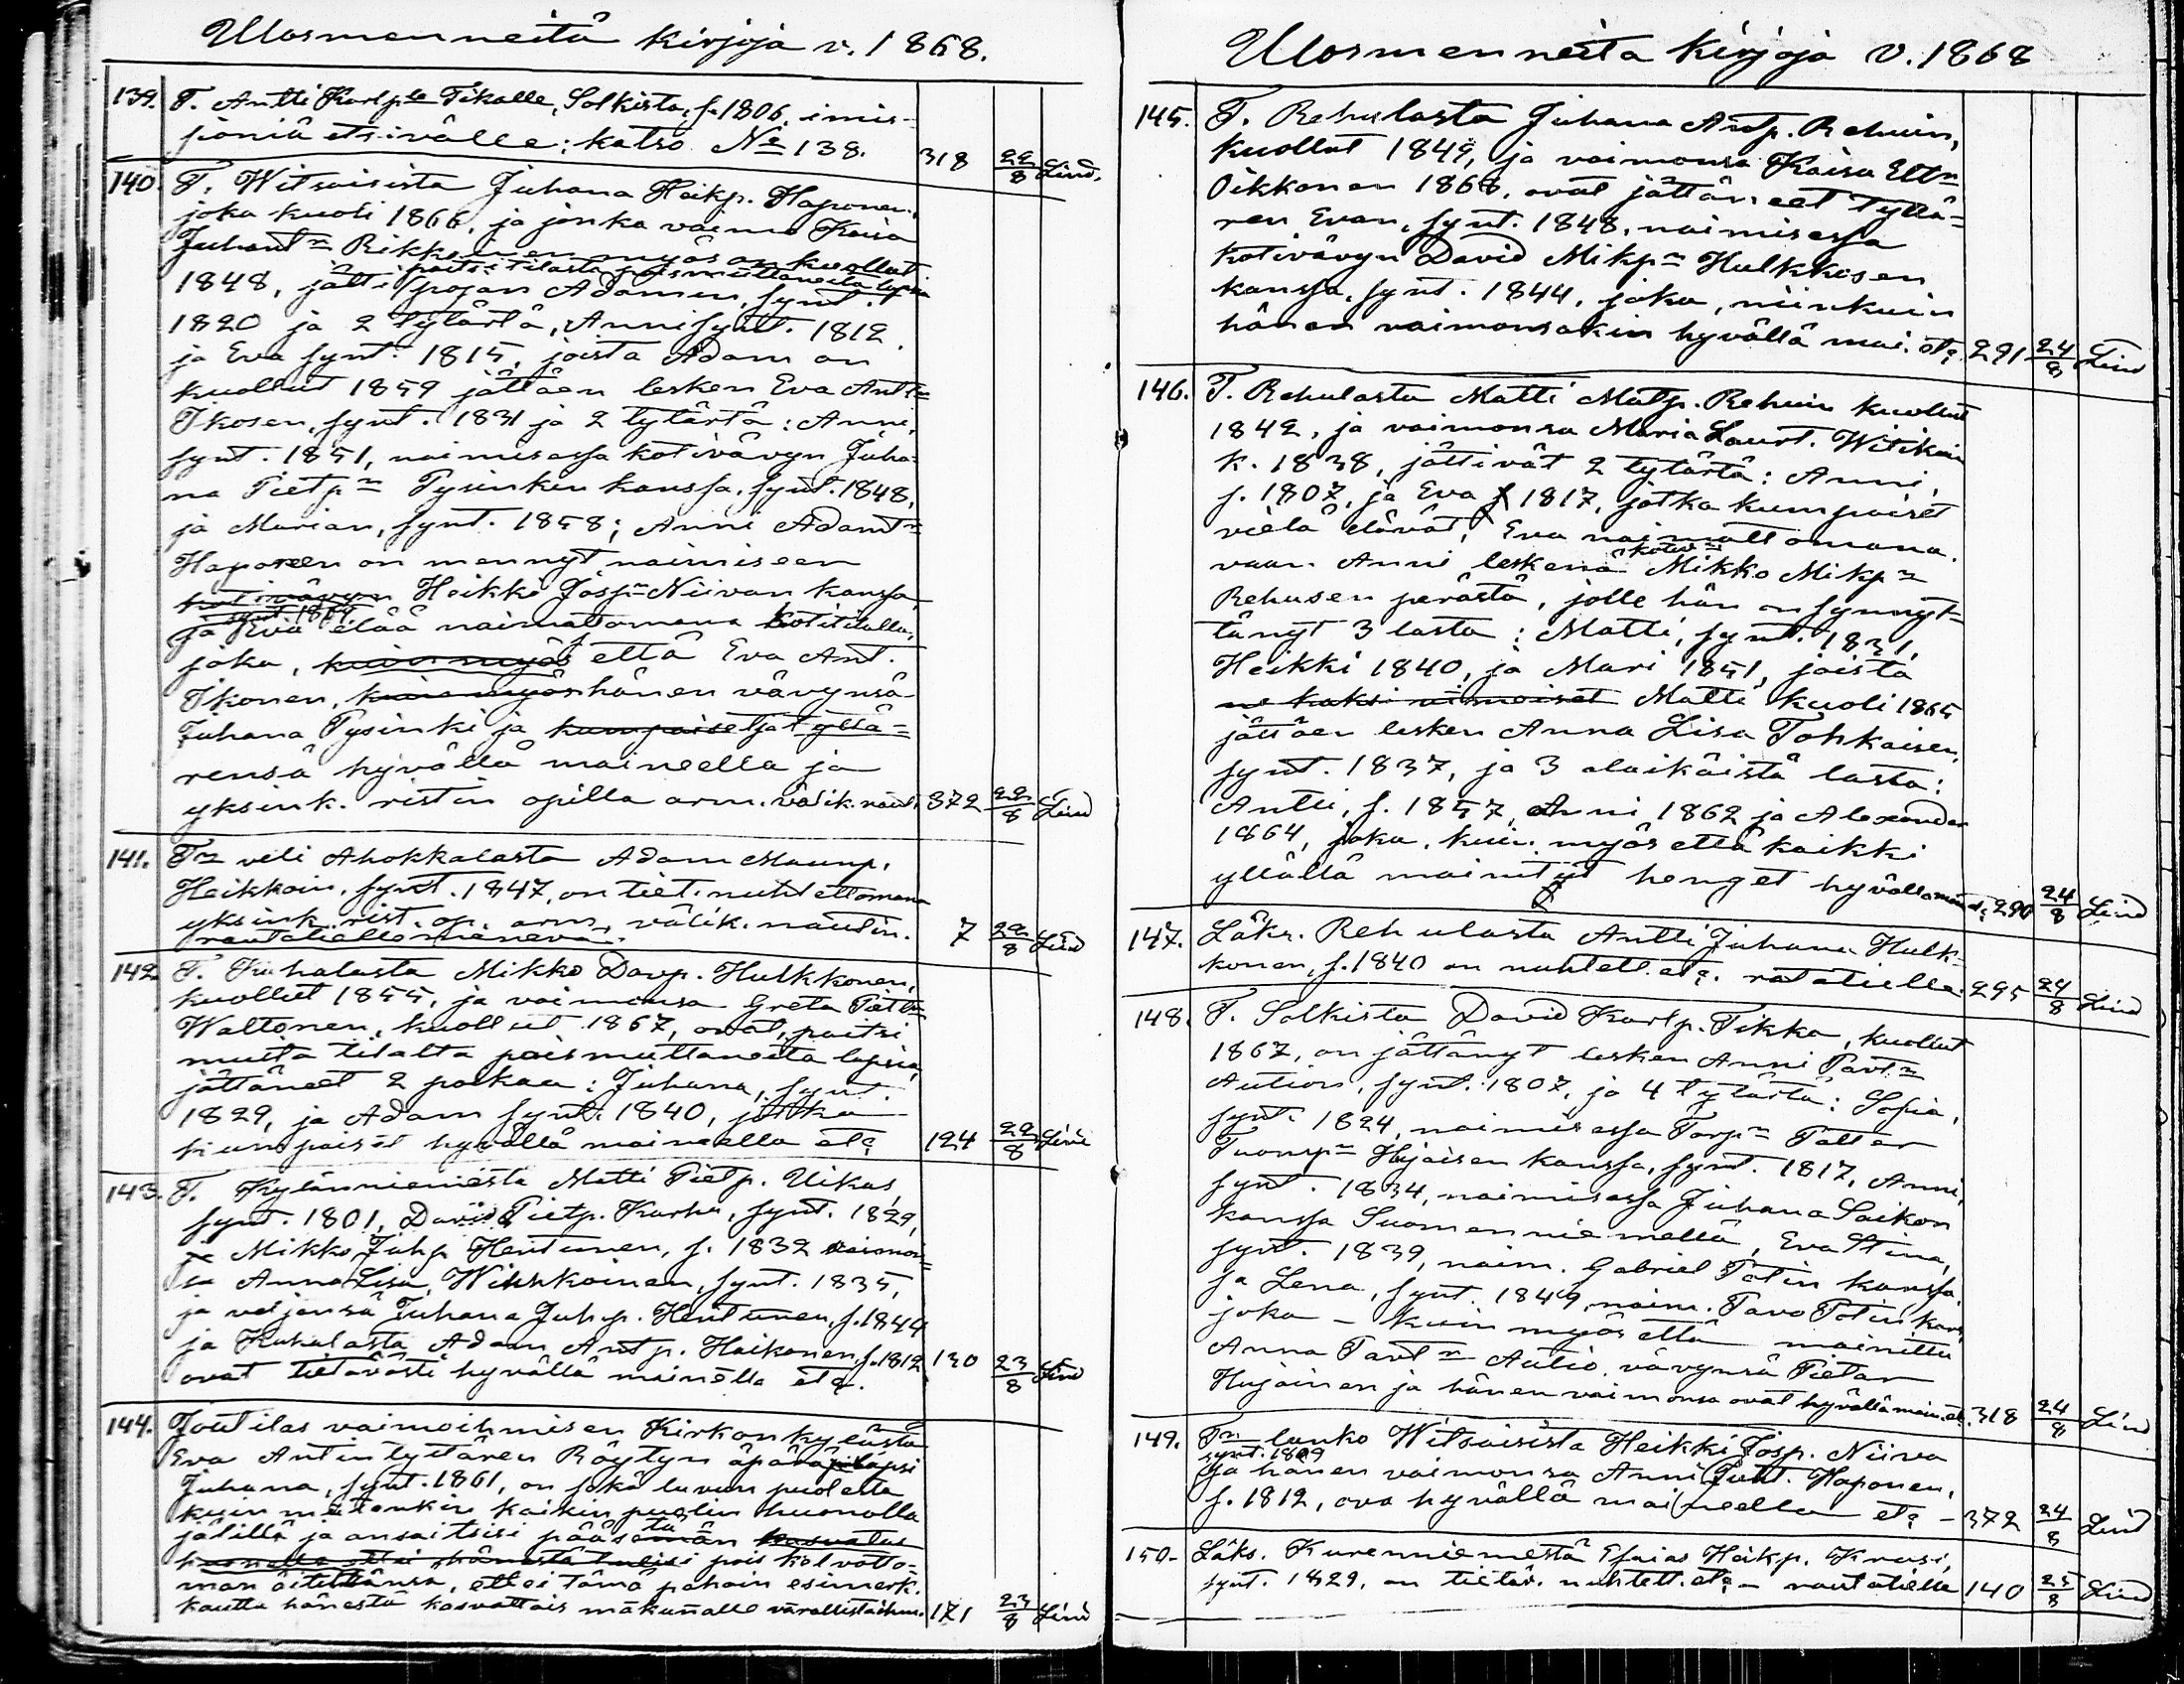 Ulosmenneitä kirjoja v. 1868.
139. T. Antti Karlp:le Tikalle, Solkista, f. 1806, imis-
sioniä etsivälle; katso No 138. 318 22/8 Lind.
140. T. Witsaisista Juhana Heikp. Haponen,
joka kuoli 1866, ja jonka vaimo Kaisa
Juhant:r myös on kuollut
paitsi tilasta poismuuttaneita lapsia
1848, jätti pojan Adamin, synt.
1820 ja 2 tytärtä, Anni synt. 1812
ja Eva synt. 1815, joista Adam on
kuollut 1859 jättäen lesken Eva Ant:r
Ikosen, synt. 1831 ja 2 tytärtä: Anni,
synt. 1851, naimisessa kotivävyn Juha-
na Pietp:n Pysinkin kanssa, synt. 1848,
ja Marian, synt. 1858; Anni Adamt:r
Haponen on mennyt naimiseen
kotivävyn Heikki Josp:n Niivan kanssa,
synt. 1809
ja Eva elää naimattomana kotitilalla,
joka, kuin myös että Eva Ant.
Ikonen, kuin myös hänen vävynsä
Juhana Pysinki ja kumpaiset ja tyttä-
rensä hyvällä maineella ja
yksink. ristin opilla arm. välik. naut. 372 22/8 Lind
141. T:n veli Ahokkalasta Adam Maunp.
Heikkoin, synt. 1847, on tiet. nuhtettomana
yksink. rist. op. arm. välik. nautin. 7 22/8 Lind
rautatielle menevä.
142. T. Kuhalasta Mikko Davp. Hulkkonen,
kuollut 1855, ja vaimonsa Greta Piet:r
Waltonen, kuollut 1867, ovat, paitsi
muita tilalta poismuttaneita lapsia,
jättäneet 2 poikaa: Juhana, synt.
1829, ja Adam synt. 1840, jotka
kumpaiset hyvällä maineella etc 124 22/8 Lind
143. T. Kylänniemestä Matti Pietp. Uikas,
synt. 1801, David Pietp. Karhu, synt. 1829,
ja Mikko Juhp. Hentunen, f. 1832 vaimon-
sa Anna Lisa Wihkkoinen, synt. 1835,
ja veljensä Juhana Juhp. Hentunen, f. 1844
ja Kuhalasta Adam Antp. Haikonen, f. 1812 130 23/8 Lind
ovat tietävästi hyvällä mainella etc.
144. Joutilas vaimoihmisen Kirkonkylästä
Eva Antintyttären Röytyn äpärälapsi
Juhana, synt. 1861, on sekä luvun puolesta
kuin muutenkin kaikin puolin huonolla
jälillä ja ansaitsisi päästä kasvatus
pois kelvotto-
man äitinsä, ettei tämä pahain esimerk.
kautta hänestä kasvattais 171 23/8 Lind
Ulosmenneita kirjoja v. 1868
145. T. Rehulasta Juhana Antp. Rehuin,
kuollut 1849, ja vaimonsa Kaisa
Oikkonen 1868, ovat jättäneet tyttä-
ren Evan, synt. 1848, naimisessa
kotivävyn David Mikp:n Hulkkosen
kanssa, synt. 1844, joka, niinkuin
hänen vaimonsakin hyvällä mai. etc 291 24/8 Lind
146. T. Rehulasta Matti Matp. Rehuin kuollut
1842, ja vaimonsa Maria Laurt. Witikain
k. 1838, jättivät 2 tytärtä: Anni,
f. 1807, ja Eva f 1817, jotka kumpaiset
vielä elävät, Eva naimattomana.
vaan Anni leskenä kotiv:n Mikko Mikp:n
Rehusen perästä, jolle hän on synnyt-
tänyt 3 lasta: Matti, synt. 1831,
Heikki 1840, ja Mari 1851, joista
ne kaksi viimeiset Matti kuoli 1865
jättäen lesken Anna Lisa Tohkaisen,
synt. 1837, ja 3 alaikäistä lasta:
Antti, f. 1857, Anni 1862 ja Alexander
1864, joka, kuin myös että kaikki
yllällä mainitut henget hyvällä main. etc 290 24/8 Lind
147. Läks. Rehulasta Antti Juhana Hulk-
konen, f. 1840 on nuhtett. etc. ratatielle. 295 24/8 Lind
148. T. Solkista David Karlp. Tikka, kuollut
1867, on jättänyt lesken Anni Pavt:r
Aution, synt. 1807, ja 4 tytärtä: Sofia,
synt. 1824, naimisessa Torp:n
Tuomp:n Hujaisen kanssa, synt. 1817, Anni,
synt. 1834, naimisessa Juhana Saikon
kanssa Suomenniemellä, Eva Stina,
synt. 1839, naim. Gabriel Potin kanssa,
ja Lena, synt. 1849, naim. Pavo Potin kans.
joka – kuin myös että mainittu
Anna Pavt:r Autio, vävynsä Pietar
Hujainen ja hänen vaimonsa ovat hyvällä main. etc. 318 24/8 Lind
149. T:n lanko Witsaisista Heikki Josp. Niiva
synt. 1809
ja hänen vaimonsa Anni Juht. Haponen,
f. 1812, ova hyvällä maineella etc – 372 24/8 Lind
150. Läks. Kurenniemestä Esaias Heikp. Krusi,
synt. 1829, on tietäv. nuhtett. etc – rautatielle 140 25/8 Lind